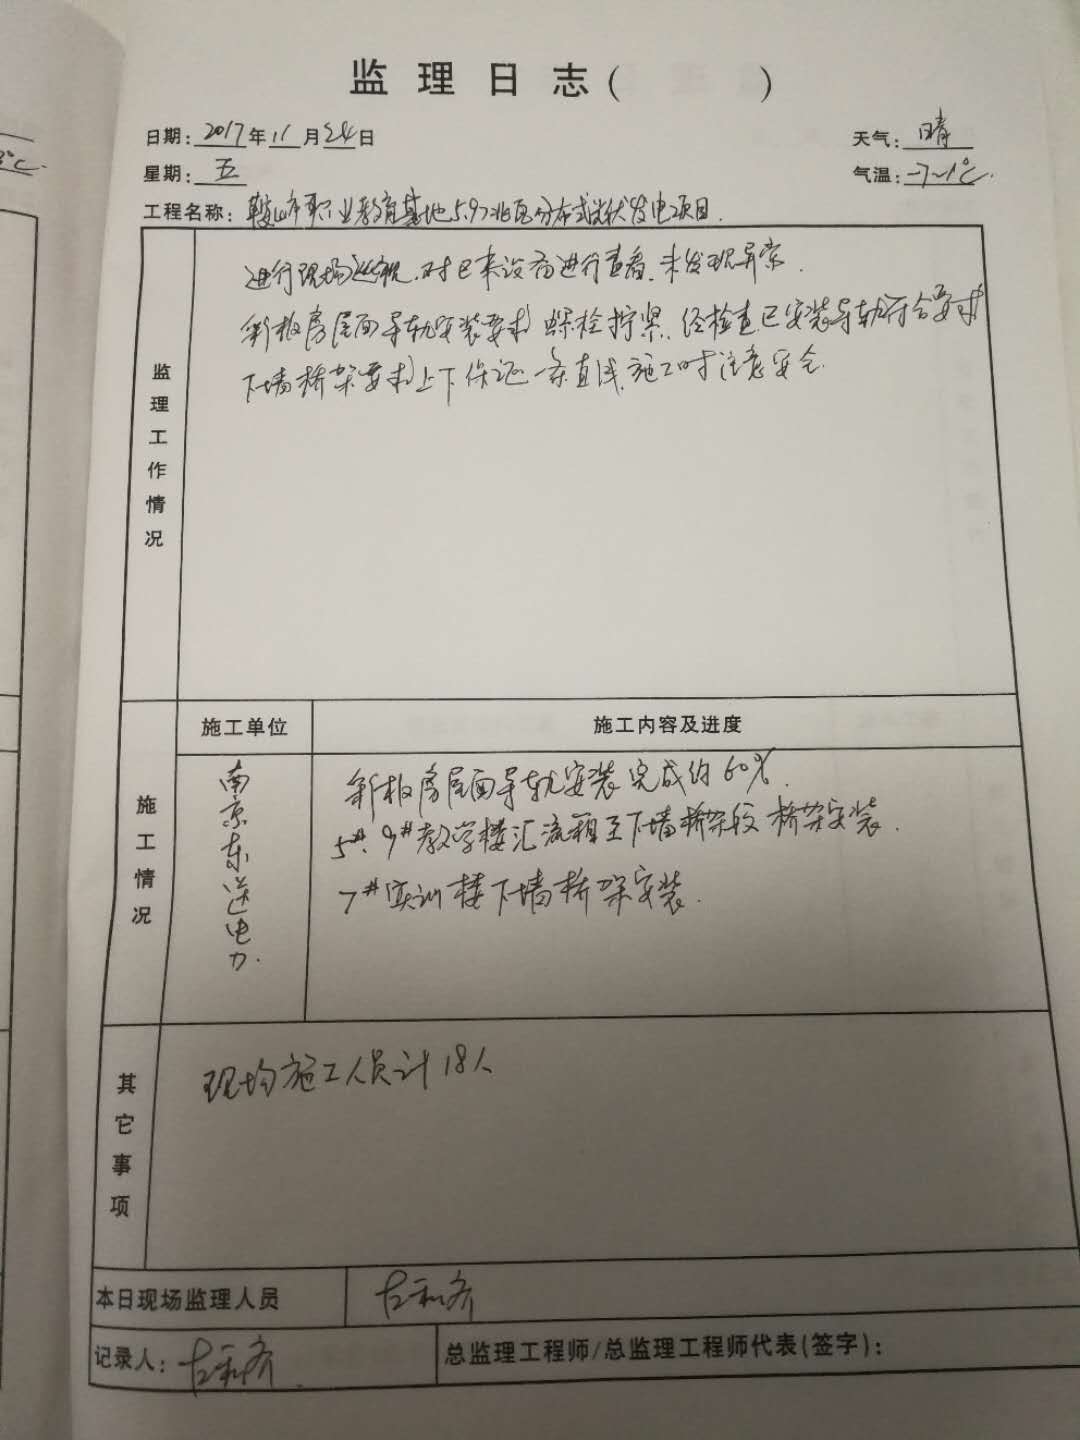 监理日志(  )
日期: 2017年11月24日 天气: 晴
星期: 五 气温: -7~1℃.
工程名称: 鞍山市职业教育基地5.97兆瓦分布式光伏发电项目.
监理工作情况
进行现场巡视.对已来设备进行查看.未发现异常.
新板房屋面导轨安装要求螺栓拧紧.经检查已安装导轨符合要求
下墙桥架要求上下保证一条直线.施工时注意安全.
施工情况
施工单位 施工内容及进度
南京东送电力.
新板房屋面导轨安装完成约60%.
5#.9#教学楼汇流箱至下墙桥架段桥架安装.
7#实训楼下墙桥架安装.
其它事项
现场施工人员计18人
本日现场监理人员
记录人:
总监理工程师/总监理工程师代表(签字):